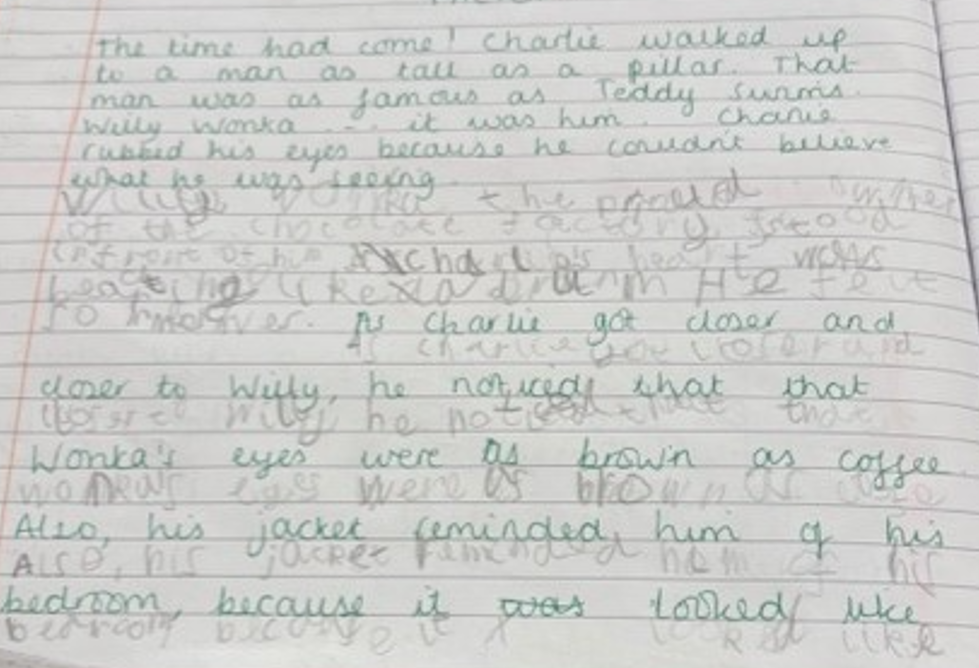 The time had come! Charlie walked up
to a man as tall as a pillar. That
man was as famous as Teddy Swims.
Willy Wonka ... it was him. Charlie
rubbed his eyes because he couldn't believe
what he was seeing
Willy Wonka the proud owner
of the chocolate factory, stood
infront of him Charlie's heart was
beating like a drum He felt
so
As Charlie got closer and
As charlie got closer and
closer to Willy, he noticed that that
closer to Willy he noticed that that
Wonka's eyes were as brown as coffee
wonka's eyes were as brown as
Also, his jacket reminded him of his
Also, his jacket reminded him of his
bedroom, because it was looked like
bedroom because it looked like